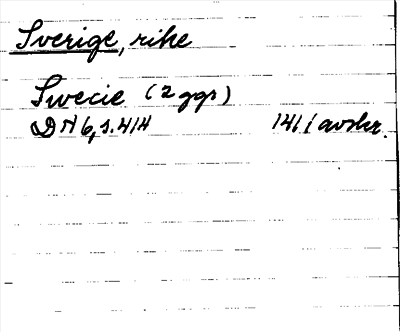 Sverige, rike
Swecie (2 ggr)
DN 6, s. 414 1411 avskr.